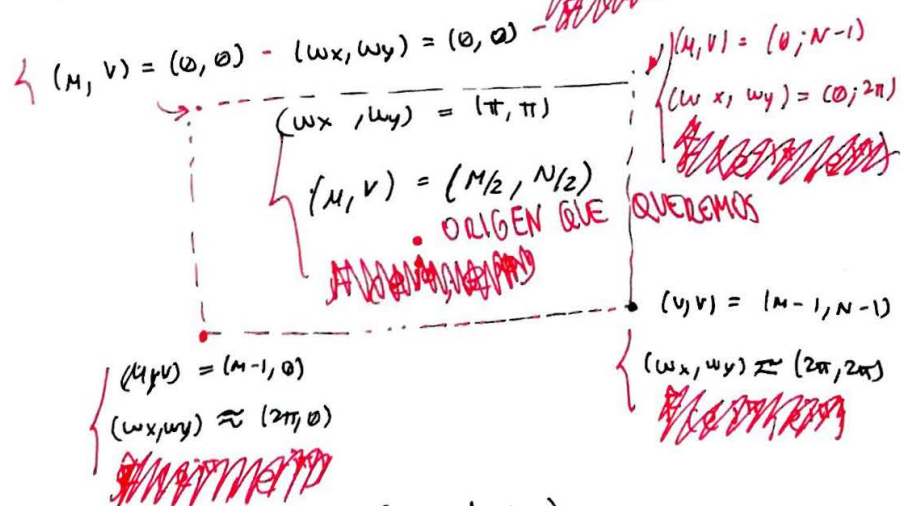 (μ, v) = (0, 0) - (wx, wy) = (0, 0) -
(μ, v) = (0; N-1)
(w x, wy) = (0; 2π)
(wx, wy) = (π, π)
(μ, v) = (M/2, N/2)
ORIGEN QUE QUEREMOS
(v, v) = (M-1, N-1)
(wx, wy) ≈ (2π, 2π)
(μ, v) = (M-1, 0)
(wx, wy) ≈ (2π, 0)